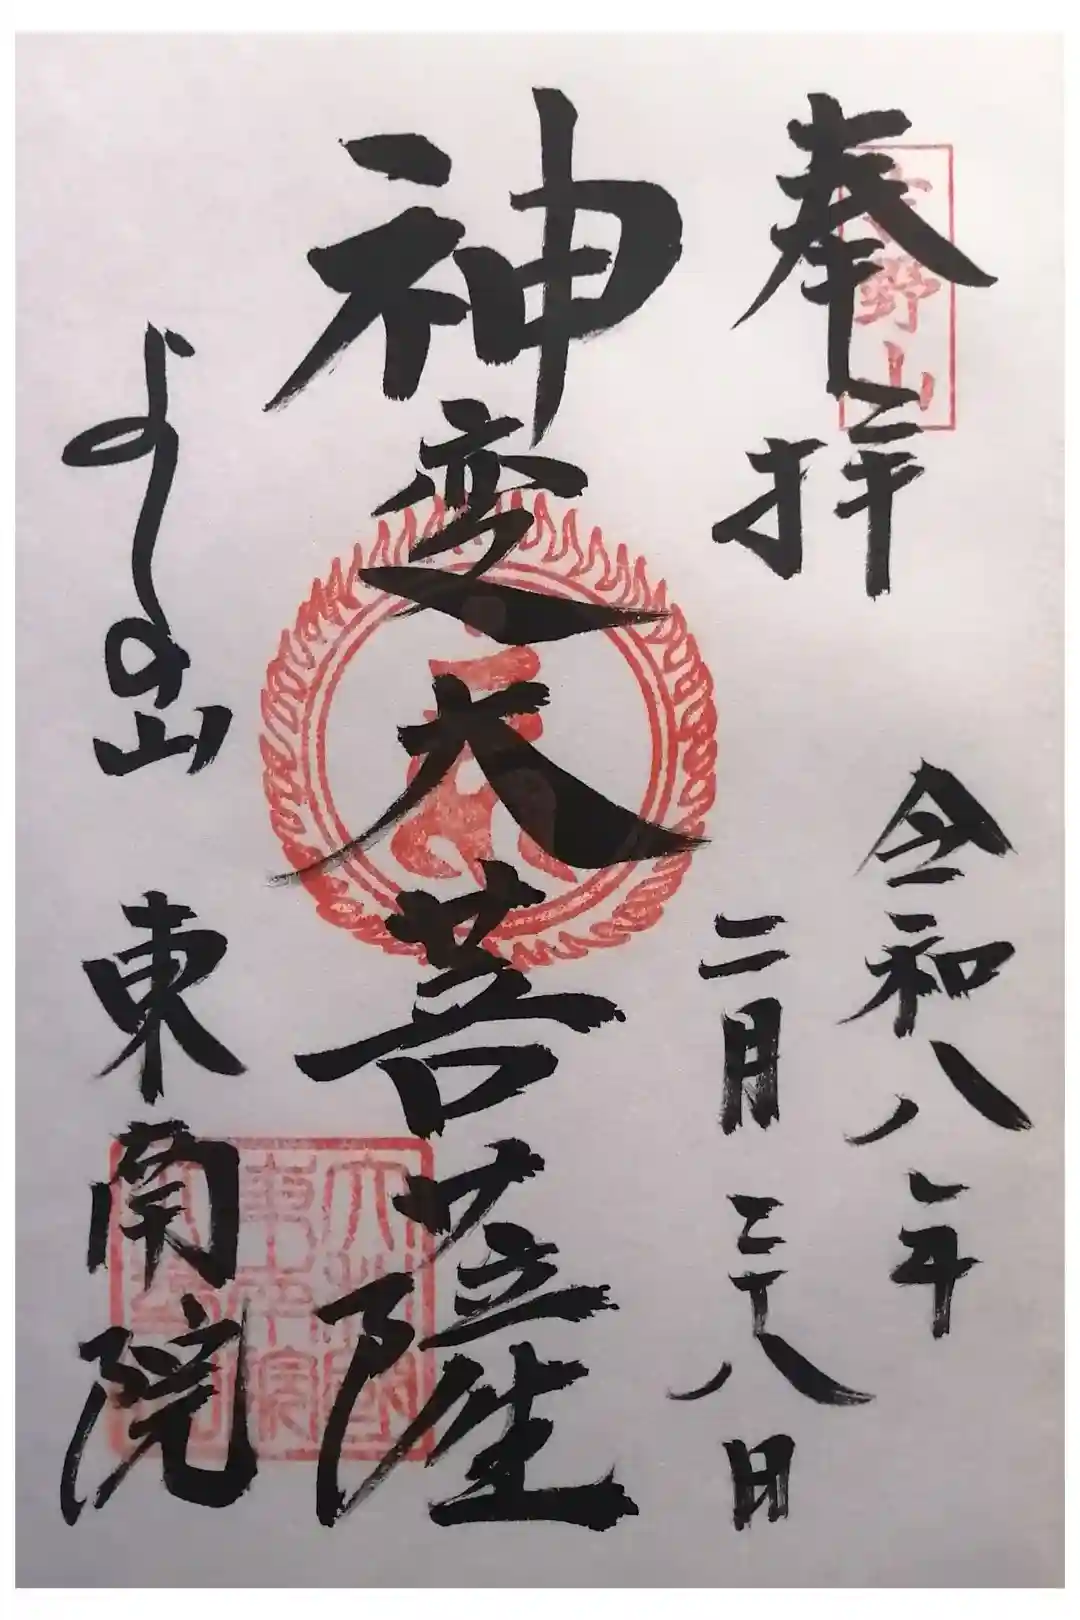 奉拝
吉野山
令和八年
二月二十八日
神変大菩薩
よしの山 東南院